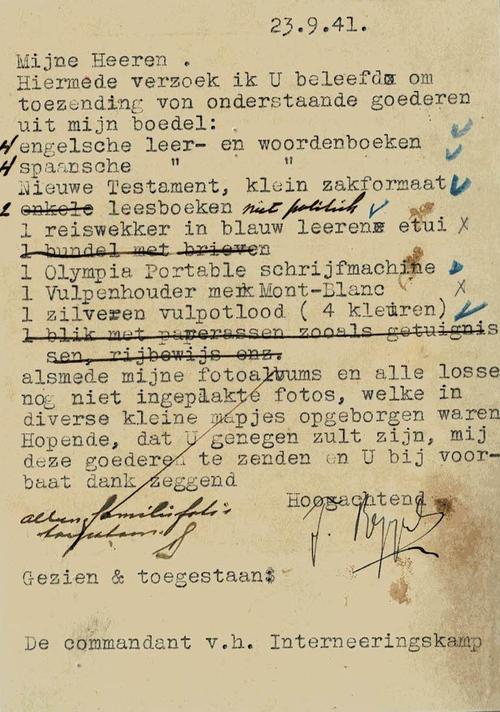 23.9.41.
Mijne Heeren .
Hiermede verzoek ik U beleefd om
toezending von onderstaande goederen
uit mijn boedel:
4 engelsche leer- en woordenboeken
4 spaansche " "
Nieuwe Testament, klein zakformaat
2 enkele leesboeken niet politik
1 reiswekker in blauw leerens etui X
1 bundel met brieven
1 Olympia Portable schrijfmachine
1 Vulpenhouder merk Mont-Blanc X
1 zilveren vulpotlood ( 4 kleuren)
1 blik met paperassen zooals getuignis
sen, rijbewijs enz.
alsmede mijne fotoalbums en alle losse
nog niet ingeplakte fotos, welke in
diverse kleine mapjes opgeborgen waren
Hopende, dat U genegen zult zijn, mij
deze goederen te zenden en U bij voor-
baat dank zeggend
Hoogachtend
alleen familiefoto's
toegestaan
J.
Gezien & toegestaan:
De commandant v.h. Interneeringskamp